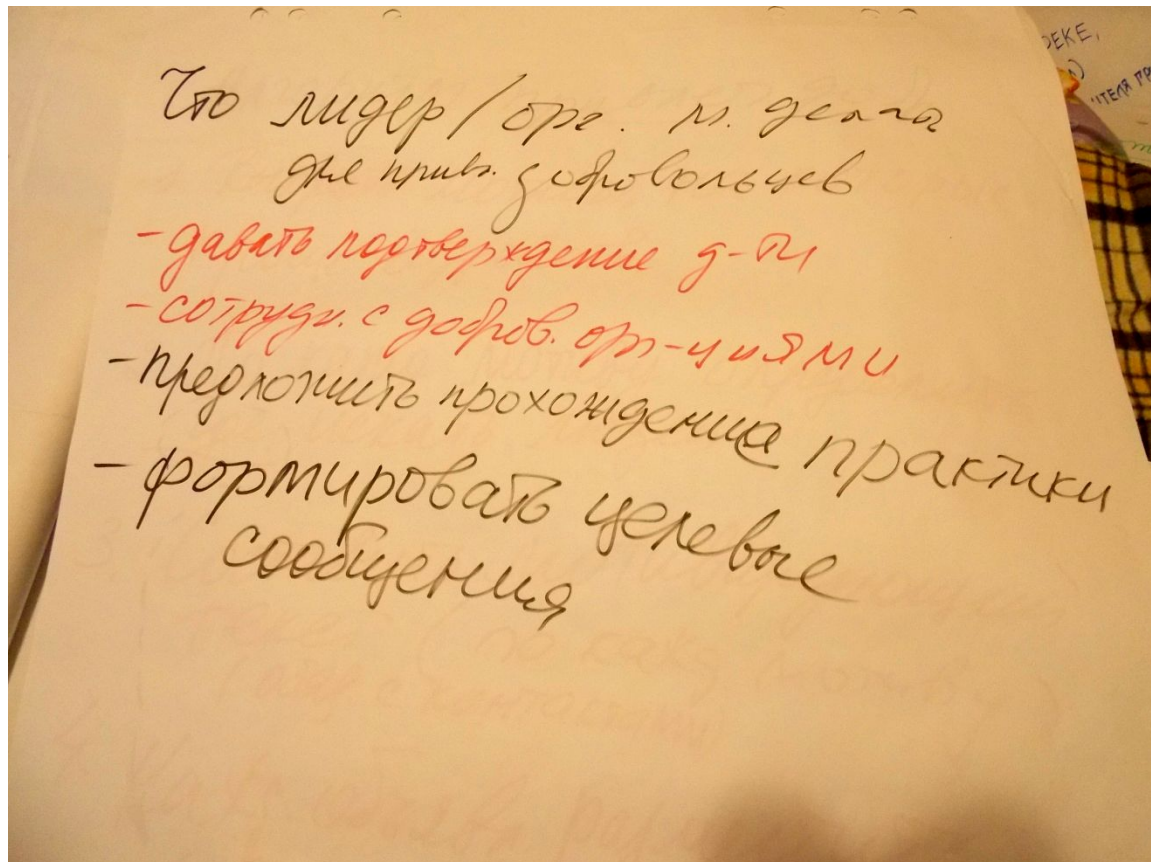 Что лидер / орг. м. делать
для привл. добровольцев
- давать подтверждение д-ти
- сотрудн. с добров. орг-циями
- предложить прохождение практики
- формировать целевые
сообщения
РЕКЕ,